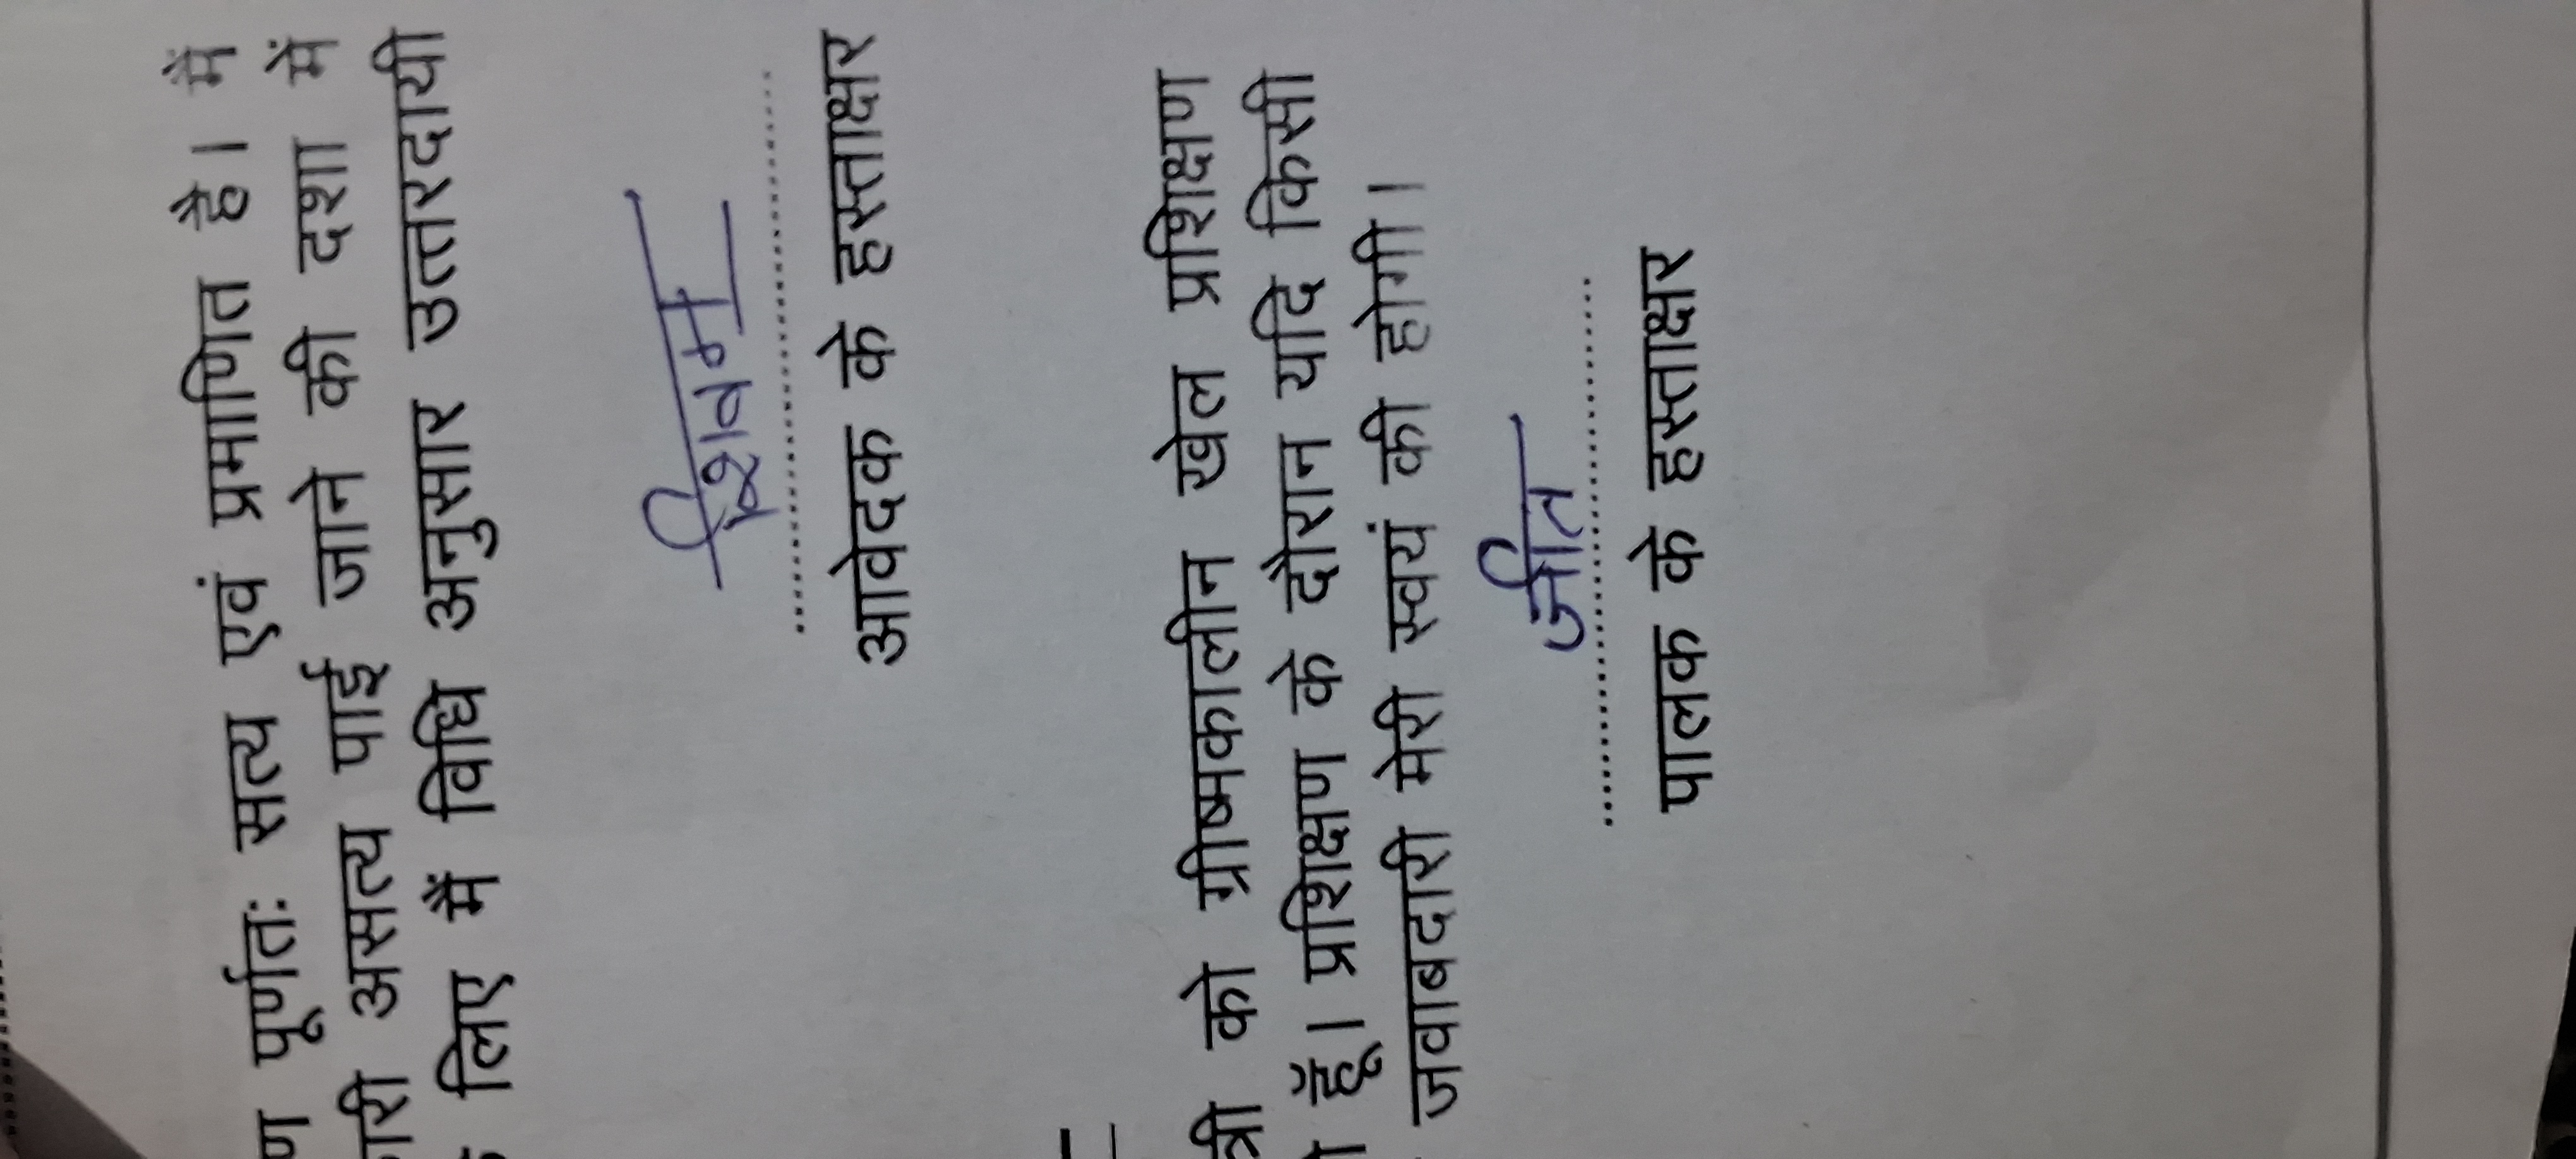 पूर्णतः सत्य एवं प्रमाणित है। मैं
असत्य पाई जाने की दशा में
लिए मैं विधि अनुसार उत्तरदायी
शिवम
आवेदक के हस्ताक्षर
को ग्रीष्मकालीन खेल प्रशिक्षण
हूँ। प्रशिक्षण के दौरान यदि किसी
जवाबदारी मेरी स्वयं की होगी।
जीत
पालक के हस्ताक्षर